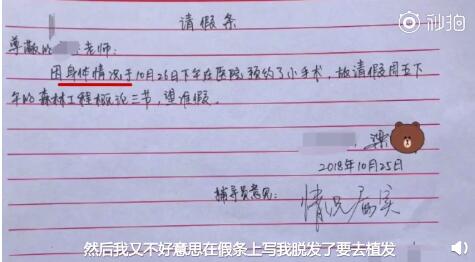 秒拍
请假条
尊敬的 老师:
因身体情况于10月26日下午在医院预约了小手术,故请假周五下
午的森林工程概论三节,望准假。
梁
2018年10月25日
辅导员意见:
情况属实
然后我又不好意思在假条上写我脱发了要去植发